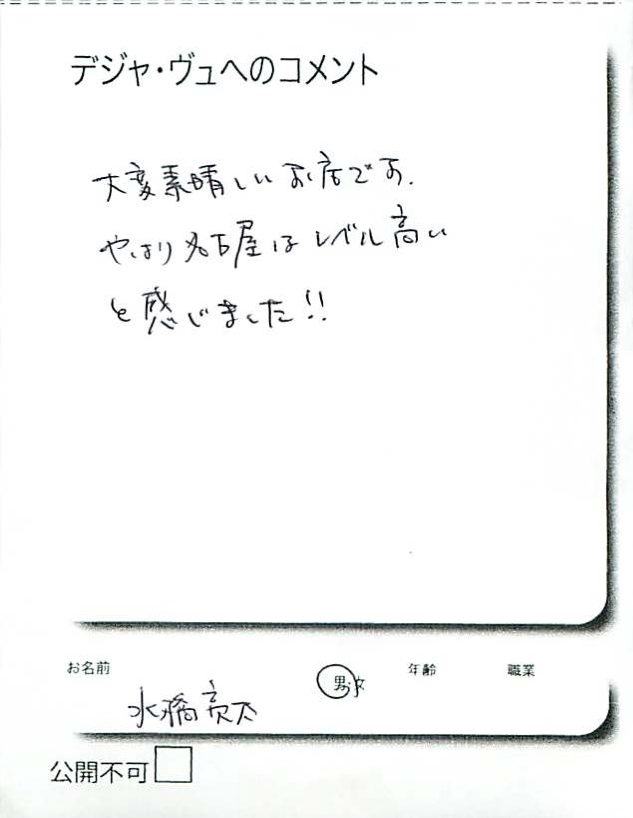 デジャ・ヴュへのコメント
大変素晴しいお店です.
やはり名古屋はレベル高い
と感じました!!
お名前
男・女
年齢
職業
水橋亮太
公開不可